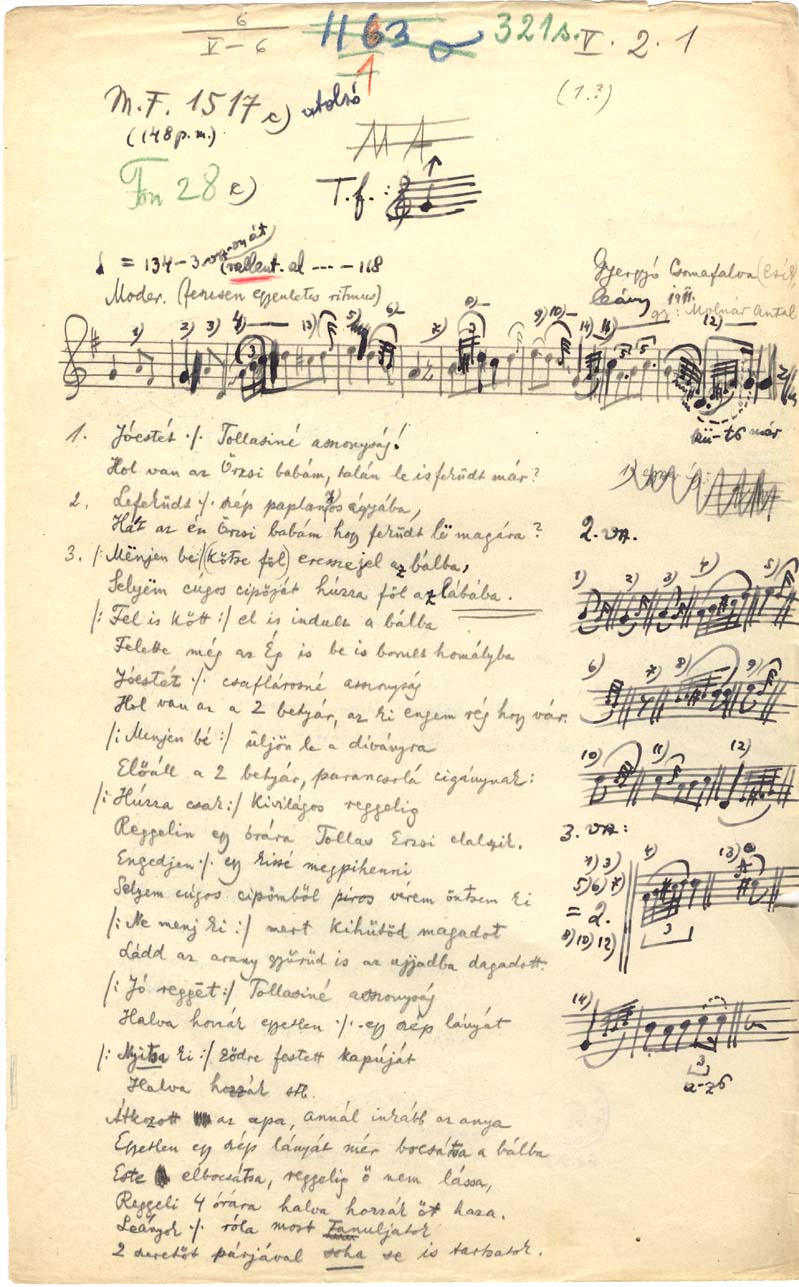 6
V–6
1163
321s.
V. 2. 1
1
M.F. 1517 c) utolsó
(1.?)
(148 p.m.)
MA
Fon 28 c)
T.f.:
= 134–3. vsz.-onát
(rallent. al --- 168
Moder. (feszesen egyenletes ritmus)
Gyergyó Csomafalva (Csík),
leány 1911.
gy: Molnár Antal
1) 2) 3) 4) 13) 5) 6) 7) 8) 9) 10) 14) 12)
kü-tő már
1. Jóestét ·/· Tollasiné asszonyság!
Hol van az Örzsi babám, talán le is feküdt már?
2. Lefeküdt ·/· szép paplanyos ágyába,
Hát az én Örzsi babám hogy feküdt lë magára?
2. vsz.
3. /: Mënjen be :/ (kötse föl) eressze jel az bálba,
Selyëm cúgos cipőjét húzza föl az lábába.
1) 2) 3) 4) 5)
/: Fel is kött :/ el is indult a bálba
Felette még az Ég is be is borult homályba
6) 7) 8) 9)
Jóestét ·/· csaflárosné asszonyság
Hol van az a 2 betyár, az ki engem rég hogy vár.
/: Menjen bé :/ üljön le a díványra
10) 11) 12)
Előáll a 2 betyár, parancsolá cigánynak:
/: Húzza csak :/ Kivilágos reggelig
3. vsz:
Reggelin egy órára Tollas Erzsi elalszik.
1) 3)
4) 13)
Engedjen ·/· egy kissé megpihenni
5) 6) 7)
Selyem cúgos cipőmből piros vérem öntsem ki
= 2.
/: Ne menj ki :/ mert kihűtöd magadot
8) 10) 12)
3
Ládd az arany gyűrűd is az ujjadba dagadott.
/: Jó reggët :/ Tollasiné asszonyság
14)
Halva hozzák egyetlen ·/· egy szép lányát
/: Nyitsa ki :/ ződre festett kapúját
3
Halva hozzák stb.
a-ző
Átkozott az apa, annál inkább az anya
Egyetlen egy szép lányát mér bocsátsa a bálba
Este elbocsátsa, reggelig ő nem lássa,
Reggeli 4 órára halva hozzák őt haza.
Leányok ·/· róla most Tanuljatok
2 szeretőt párjával soha se is tartsatok.